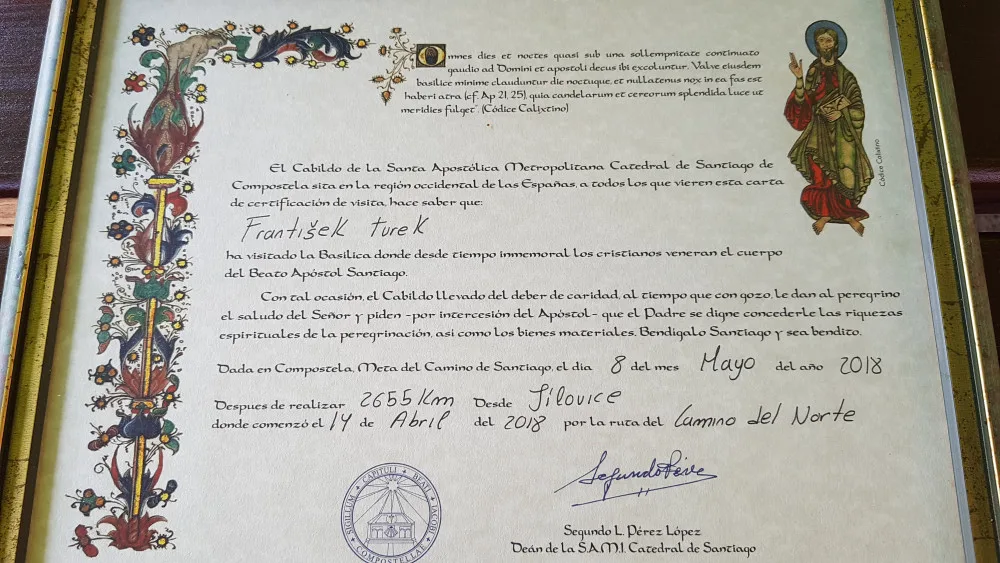 Omnes dies et noctes quasi sub una sollempnitate continuato
gaudio ad Domini et apostoli decus ibi excoluntur. Valve eiusdem
basilice minime clauduntur die noctuque, et nullatenus nox in ea fas est
haberi atra (cf. Ap 21, 25), quia candelarum et cereorum splendida luce ut
meridies fulget". (Códice Calixtino)
Códice Calixtino
El Cabildo de la Santa Apostólica Metropolitana Catedral de Santiago de
Compostela sita en la región occidental de las Españas, a todos los que vieren esta carta
de certificación de visita, hace saber que:
František Turek
ha visitado la Basílica donde desde tiempo inmemorial los cristianos veneran el cuerpo
del Beato Apóstol Santiago.
Con tal ocasión, el Cabildo llevado del deber de caridad, al tiempo que con gozo, le dan al peregrino
el saludo del Señor y piden -por intercesión del Apóstol- que el Padre se digne concederle las riquezas
espirituales de la peregrinación, asi como los bienes materiales. Bendígalo Santiago y sea bendito.
Dada en Compostela, Meta del Camino de Santiago, el día 8 del mes Mayo del año 2018
Despues de realizar 2655 Km Desde Jílovice
donde comenzó el 14 de Abril del 2018 por la ruta del Camino del Norte
SIGILLUM CAPITULI BEATI JACOBI COMPOSTELLAE
Segundo L. Pérez López
Deán de la S.A.M.I. Catedral de Santiago